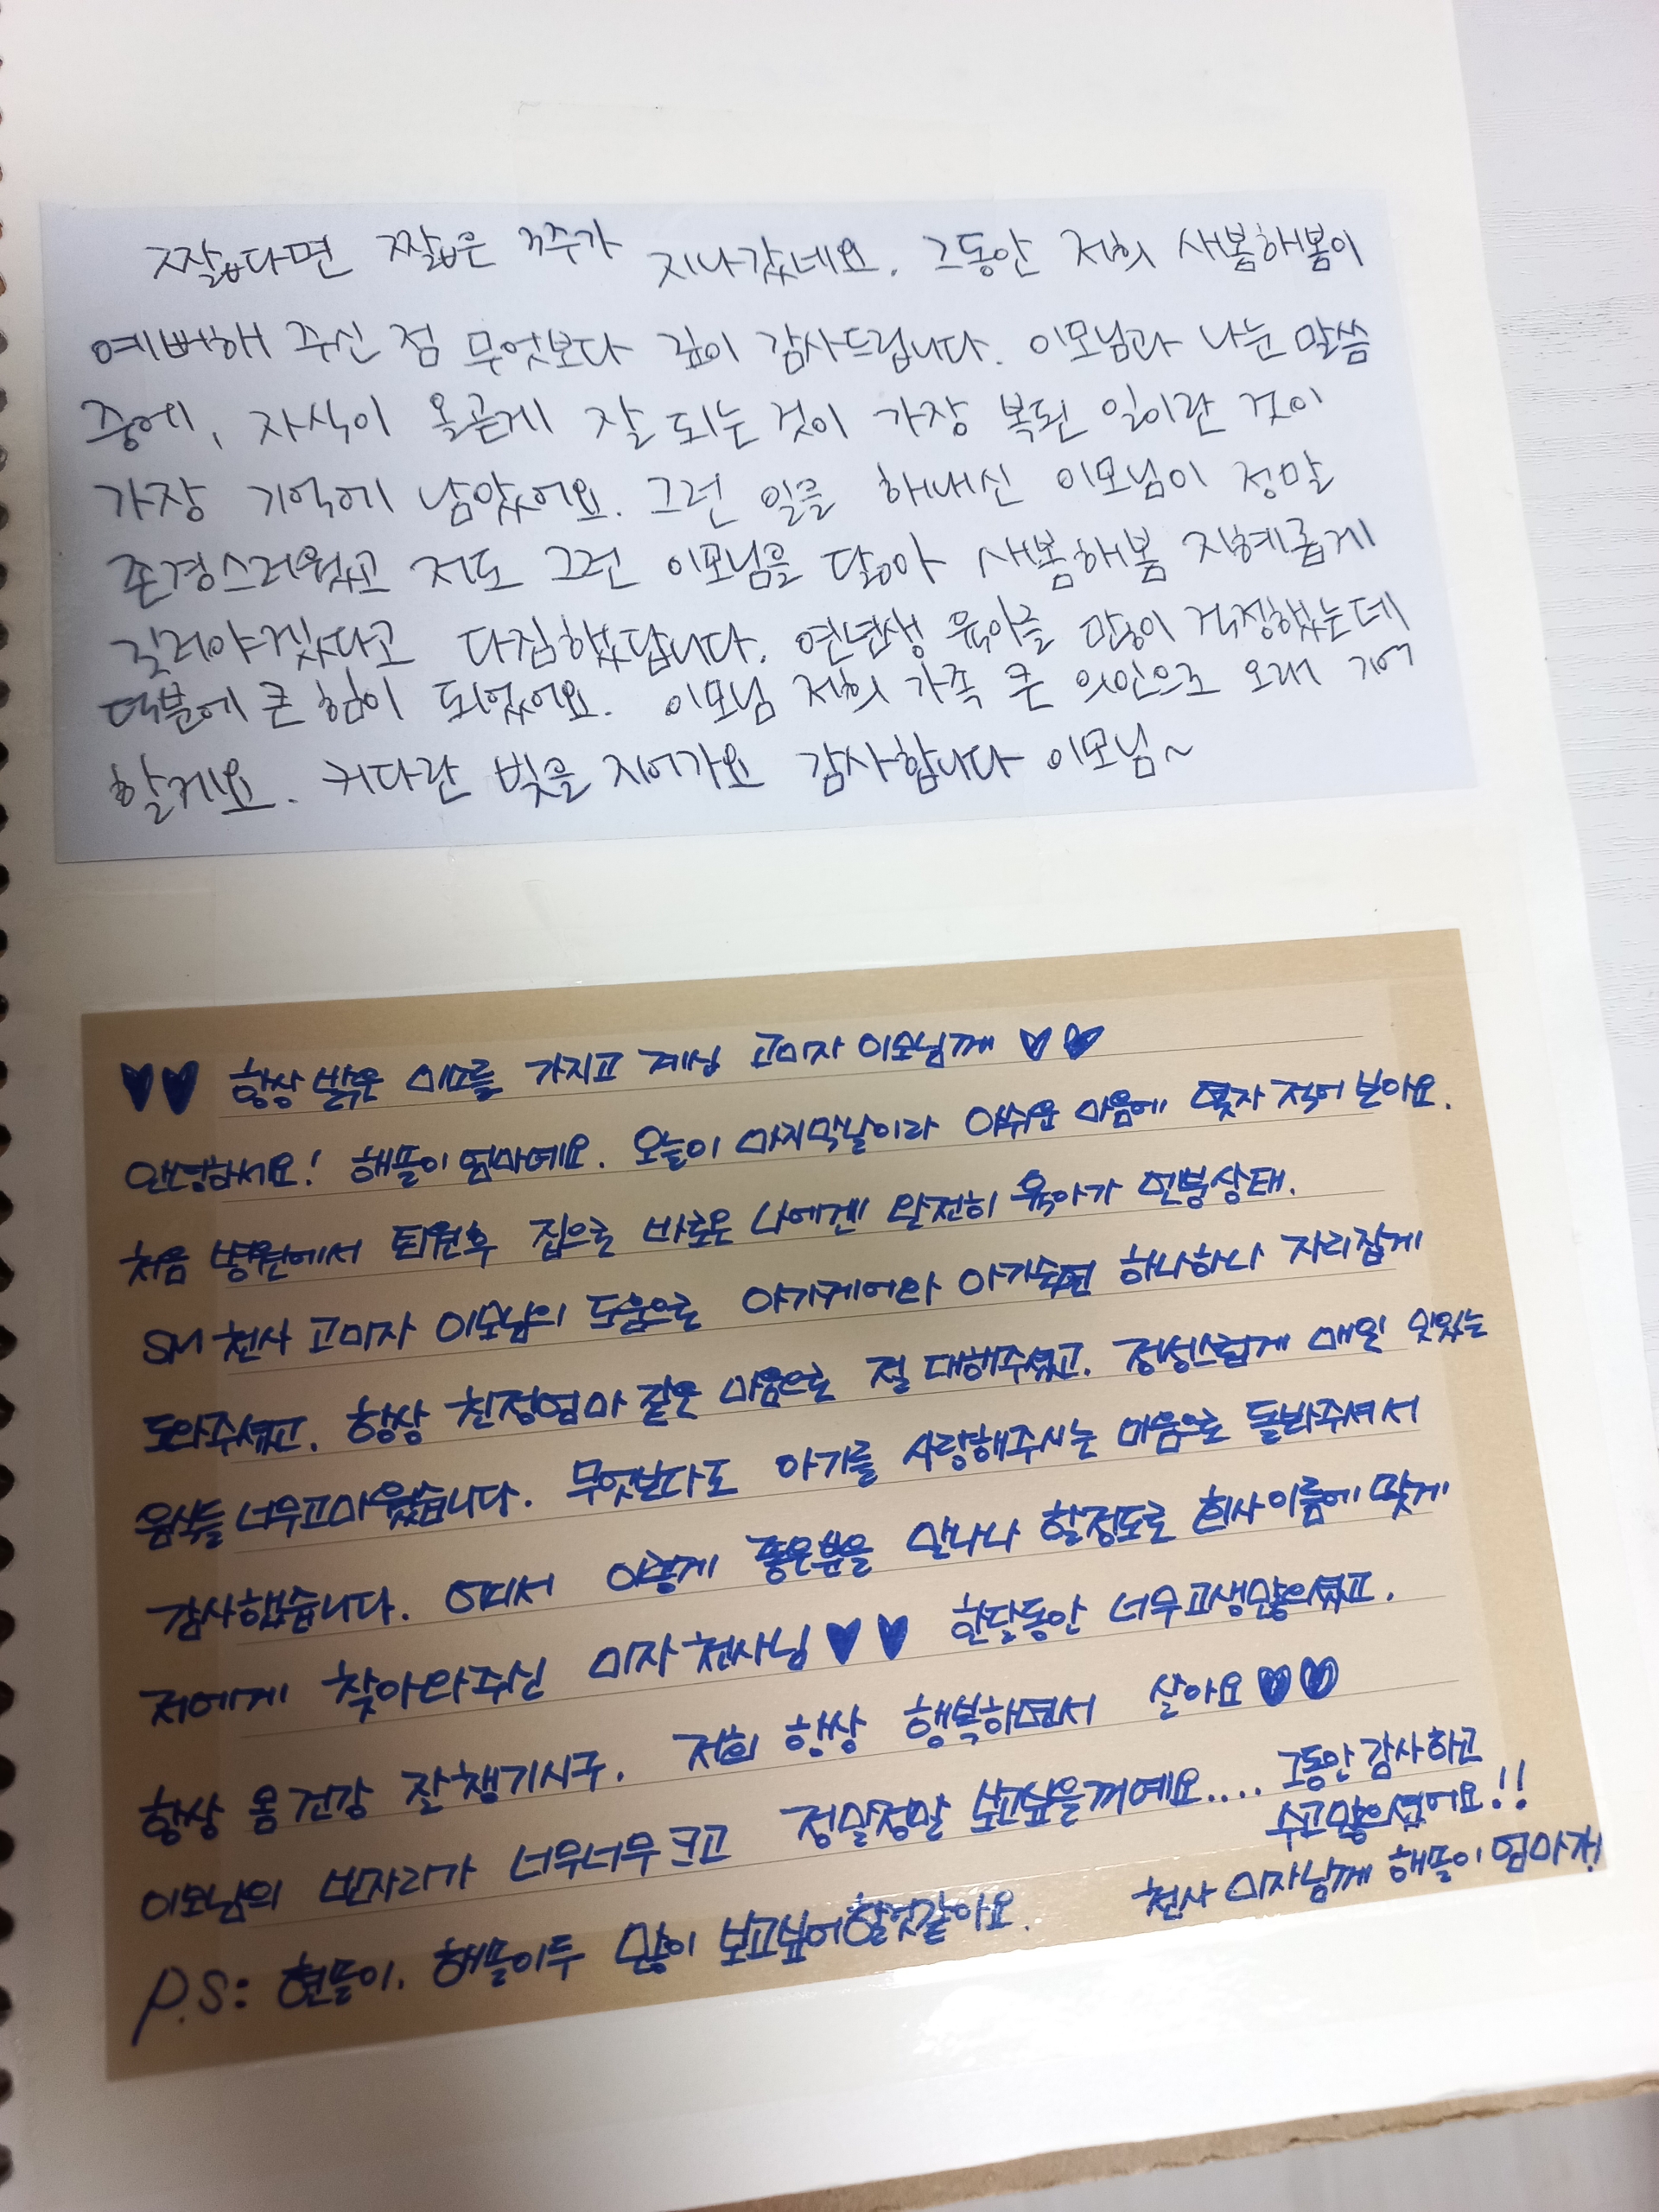 짧다면 짧은 3주가 지나갔네요. 그동안 저희 새봄해봄이
예뻐해 주신 점 무엇보다 깊이 감사드립니다. 이모님과 나눈 말씀
중에, 자식이 올곧게 잘 되는 것이 가장 복된 일이란 것이
가장 기억에 남았어요. 그런 일을 해내신 이모님이 정말
존경스러웠고 저도 그런 이모님을 닮아 새봄해봄 지혜롭게
길러야겠다고 다짐했답니다. 연년생 육아를 많이 걱정했는데
덕분에 큰 힘이 되었어요. 이모님 저희 가족 큰 의인으로 오래 기억
할게요. 커다란 빚을 지어가요 감사합니다 이모님~
♥♥ 항상 밝은 미소를 가지고 계신 고미자 이모님께 ♥♥
안녕하세요! 해뜰이 엄마예요. 오늘이 마지막날이라 아쉬운 마음에 몇자 적어 보아요.
처음 병원에서 퇴원후 집으로 바로온 나에겐 완전히 육아가 멘붕상태.
SM 천사 고미자 이모님의 도움으로 아기케어와 아기수면 하나하나 자리잡게
도와주셨고. 항상 친정엄마 같은 마음으로 절 대해주셨고. 정성스럽게 매일 맛있는
음식들 너무고마웠습니다. 무엇보다도 아기를 사랑해주시는 마음으로 돌봐주셔서
감사했습니다. 어디서 이렇게 좋은분을 만나나 할정도로 회사이름에 맞게
저에게 찾아와주신 미자천사님♥♥ 한달동안 너무고생많으셨고.
항상 몸 건강 잘챙기시구. 저희 항상 행복하면서 살아요♥♥
이모님의 빈자리가 너무너무 크고 정말정말 보고싶을꺼예요.... 그동안 감사하고
수고많으셨어요!!
천사 미자님께 해뜰이 엄마가!
P.S: 현뜰이. 해뜰이두 많이 보고싶어할것같아요.